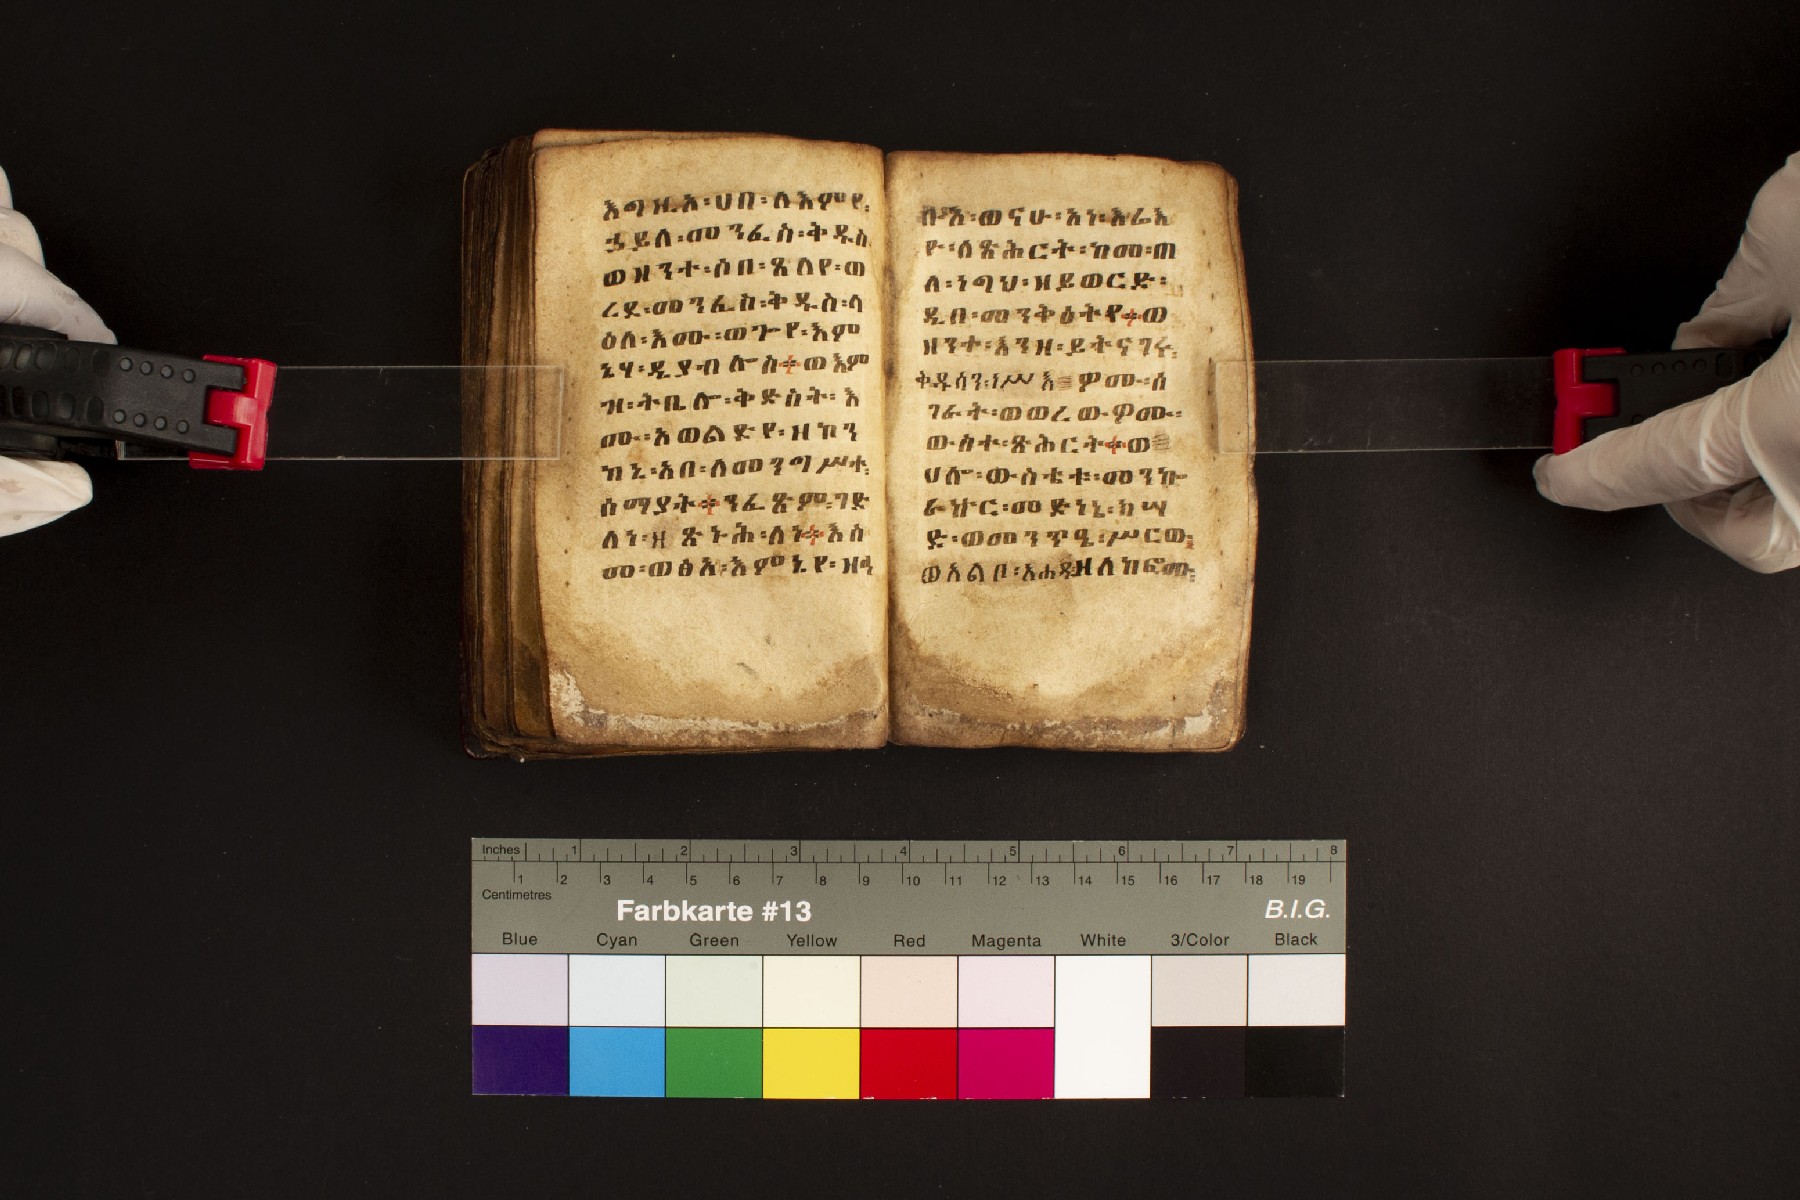 እግዚአ፡ሀበ፡ለእምየ፡
ኃይለ፡መንፈስ፡ቅዱስ
ወዘንተ፡ሶበ፡ጸለየ፡ወ
ረደ፡መንፈስ፡ቅዱስ፡ላ
ዕለ፡እሙ፡ወጐየ፡እም
ኔሃ፡ዲያብሎስ፨ወእም
ዝ፡ትቤሎ፡ቅድስት፡እ
ሙ፡አወልድየ፡ዘኮን
ከኒ፡አበ፡ለመንግሥተ፡
ሰማያት፨ንፈጽም፡ገድ
ለነ፡ዘጽኑሕ፡ለነ፨እስ
መ፡ወፅአ፡እምኔየ፡
ወናሁ፡አነ፡እሬእ
ዮ፡ለጽሕርት፡ከመ፡ጠ
ለ፡ነግህ፡ዘይወርድ፡
ዲበ፡መንቅዕትየ፨ወ
ዘንተ፡እንዘ፡ይትናገሩ፡
ቅዱሳን፡ዖሙ፡ሰ
ገራት፡ወወረውዎሙ፡
ውስተ፡ጽሕርት፨ወ
ሀሎ፡ውስቴቱ፡መንኰ
ራኵር፡መድነኒ፡ክሣ
ድ፡ወመንጥዒ፡ሥርው፡
ወአልቦ፡አሐዱዘለከፎሙ፡
Inches 1 2 3 4 5 6 7 8
1 2 3 4 5 6 7 8 9 10 11 12 13 14 15 16 17 18 19
Centimetres
Farbkarte #13 B.I.G.
Blue Cyan Green Yellow Red Magenta White 3/Color Black